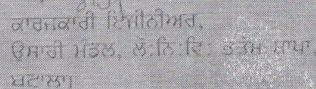 ਕਾਰਜਕਾਰੀ ਇੰਜੀਨੀਅਰ,
ਉਸਾਰੀ ਮੰਡਲ, ਲੋ:ਨਿ:ਵਿ: ਭਤੱਮ ਸ਼ਾਖਾ,
ਬਟਾਲਾ।